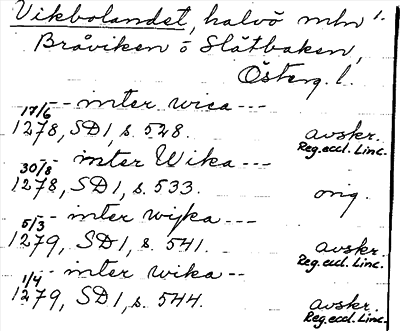 Vikbolandet, halvö mln 1.
Bråviken o Slätbaken,
Österg. l.
17/6 -- inter wica ---
1278, SD1, s. 528. avskr.
Reg. eccl. Linc.
30/8 - inter Wika ---
1278, SD1, s. 533. orig.
5/3 - inter wijka ---
1279, SD1, s. 541. avskr.
Reg. eccl. Linc.
1/4 - inter wika --
1279, SD1, s. 544. avskr.
Reg. eccl. Linc.